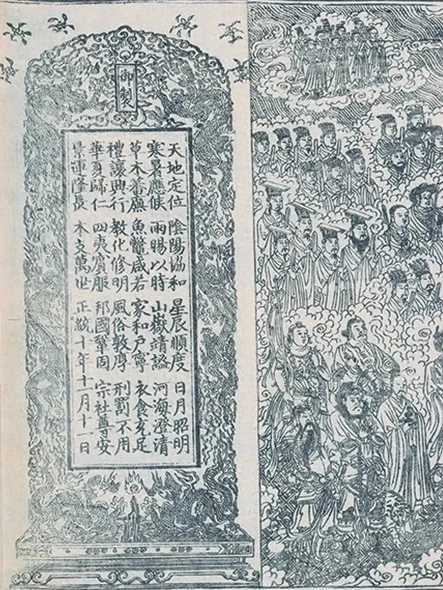 御製
天地定位 陰陽協和 星辰順度 日月昭明
寒暑應候 雨暘以時 山嶽靖謐 河海澄清
草木蕃廡 魚鱉咸若 家和户寧 衣食充足
禮讓興行 教化修明 風俗敦厚 刑罰不用
華夏歸仁 四夷賓服 邦國鞏固 宗社尊安
景運隆長 本支萬世 正統十年十一月十一日